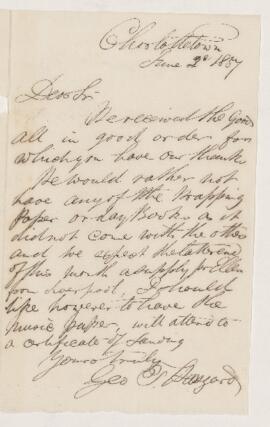 Charlottetown
June 2d 1857
Dear Sir
We received the Goods
all in good order for
which you have our thanks
We would rather not
have any of the Wrapping
Paper or day Books as it
did not come with the other
and we expect the latter end
of this month a supply
from Liverpool, I should
like however to have the
music paper, will attend to
a certificate of Landing
Yours truly
Geo T. Haszard